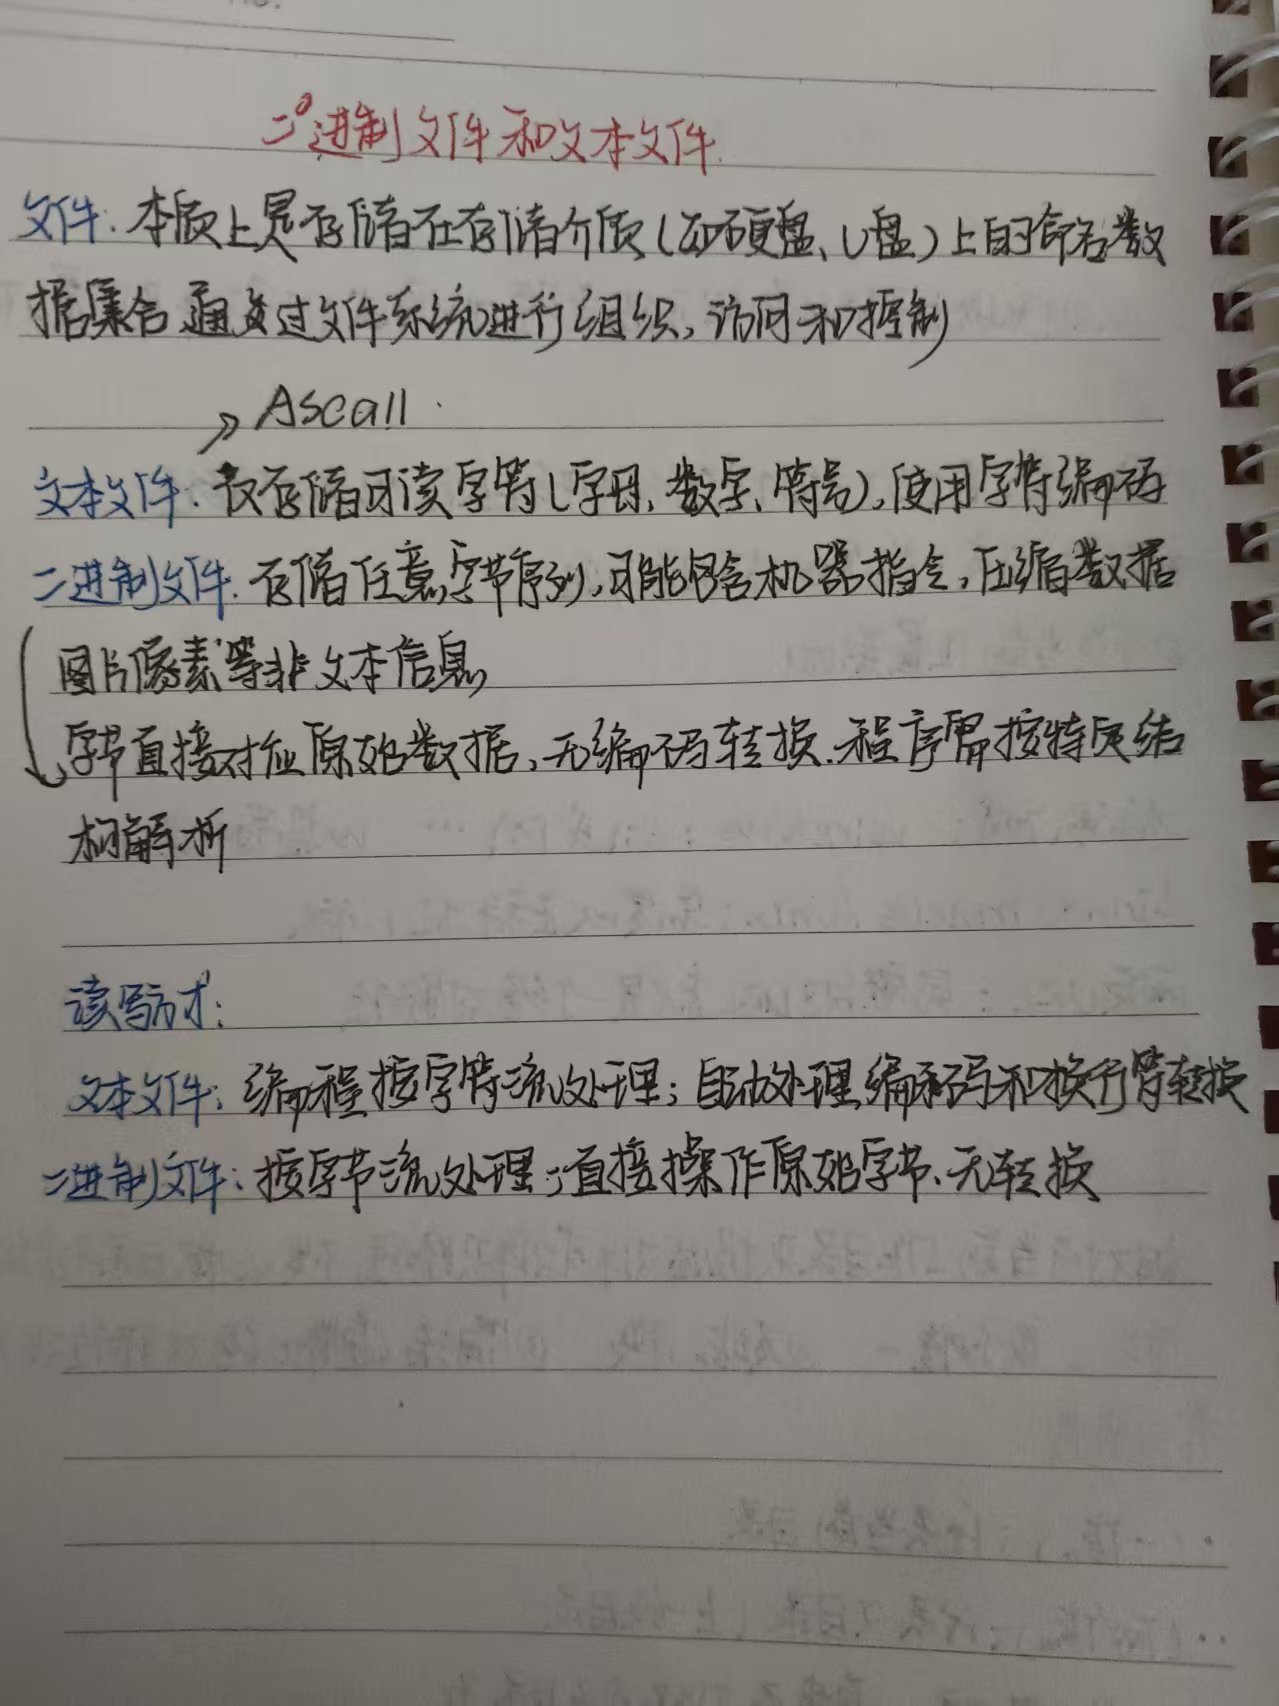 二进制文件和文本文件
文件:本质上是存储在存储介质(如硬盘、U盘)上的命名数
据集合 通过文件系统进行组织,访问和控制
Ascall
文本文件:仅存储可读字符(字母,数字、符号),使用字符编码
二进制文件:存储任意字节序列,可能包含机器指令,压缩数据
图片像素等非文本信息
字节直接对应原始数据,无编码转换.程序需按特定结
构解析
读写方才:
文本文件:编程按字符流处理;自动处理编码和换行符转换
二进制文件:按字节流处理;直接操作原始字节、无转换